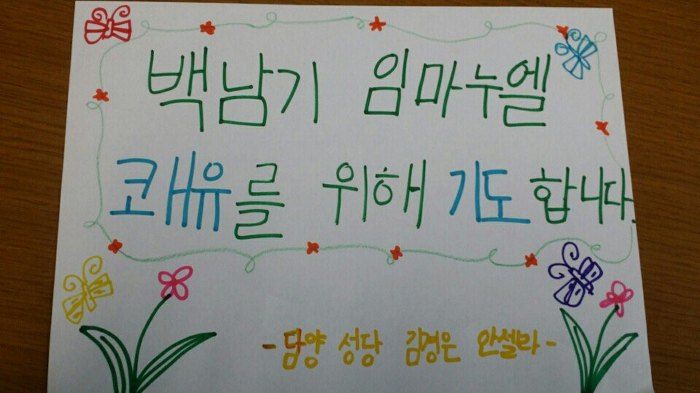 백남기 임마누엘
쾨유를 위해 기도합니다.
- 담양 성당 김경은 안셀라 -